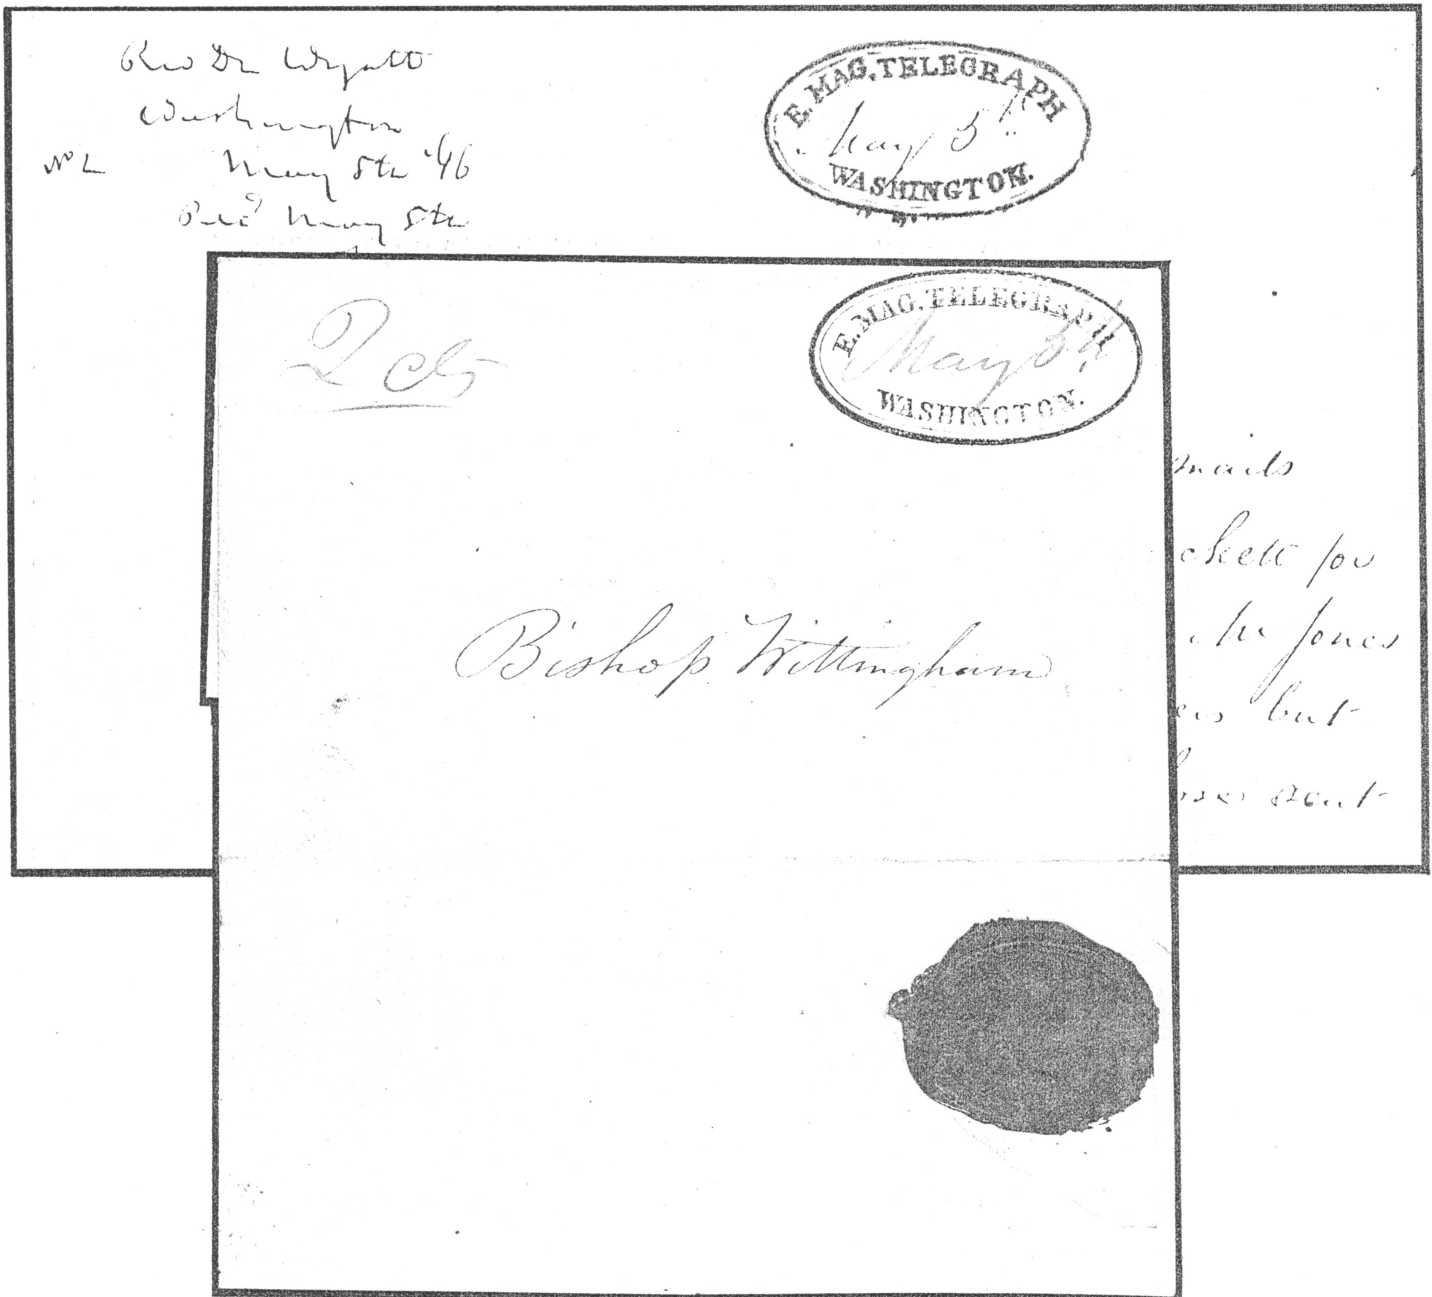 Rev Dr Wyatt
Washington
May 5th '46
Recd May 5th
E. MAG. TELEGRAPH
May 5th
WASHINGTON.
2 cts
E. MAG. TELEGRAPH
May 5th
WASHINGTON.
Bishop Wittingham
mails
for
Mr Jones
but
sent